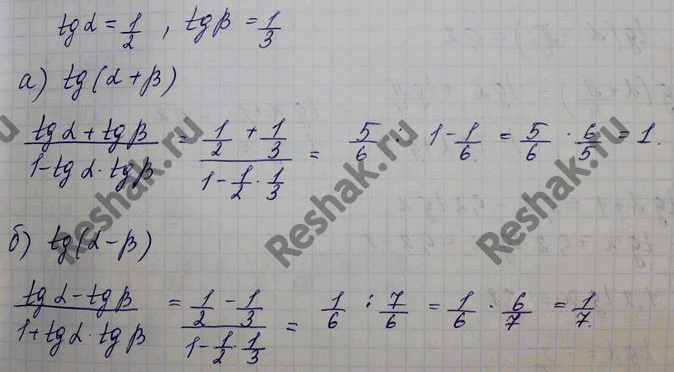 tg α = 1/2 , tg β = 1/3
а) tg(α + β)
(tg α + tg β)/(1 - tg α · tg β) = (1/2 + 1/3)/(1 - 1/2 · 1/3) = 5/6 : 1 - 1/6 = 5/6 · 6/5 = 1.
б) tg(α - β)
(tg α - tg β)/(1 + tg α · tg β) = (1/2 - 1/3)/(1 - 1/2 · 1/3) = 1/6 : 7/6 = 1/6 · 6/7 = 1/7.
Reshak.ru
Reshak.ru